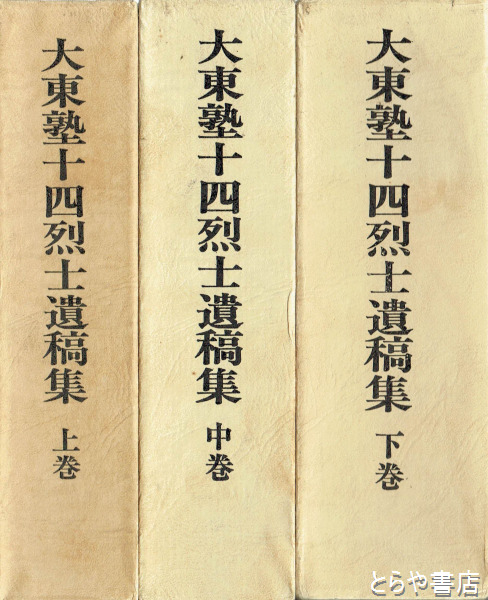 大東塾十四烈士遺稿集 上巻
大東塾十四烈士遺稿集 中巻
大東塾十四烈士遺稿集 下巻
とらや書店